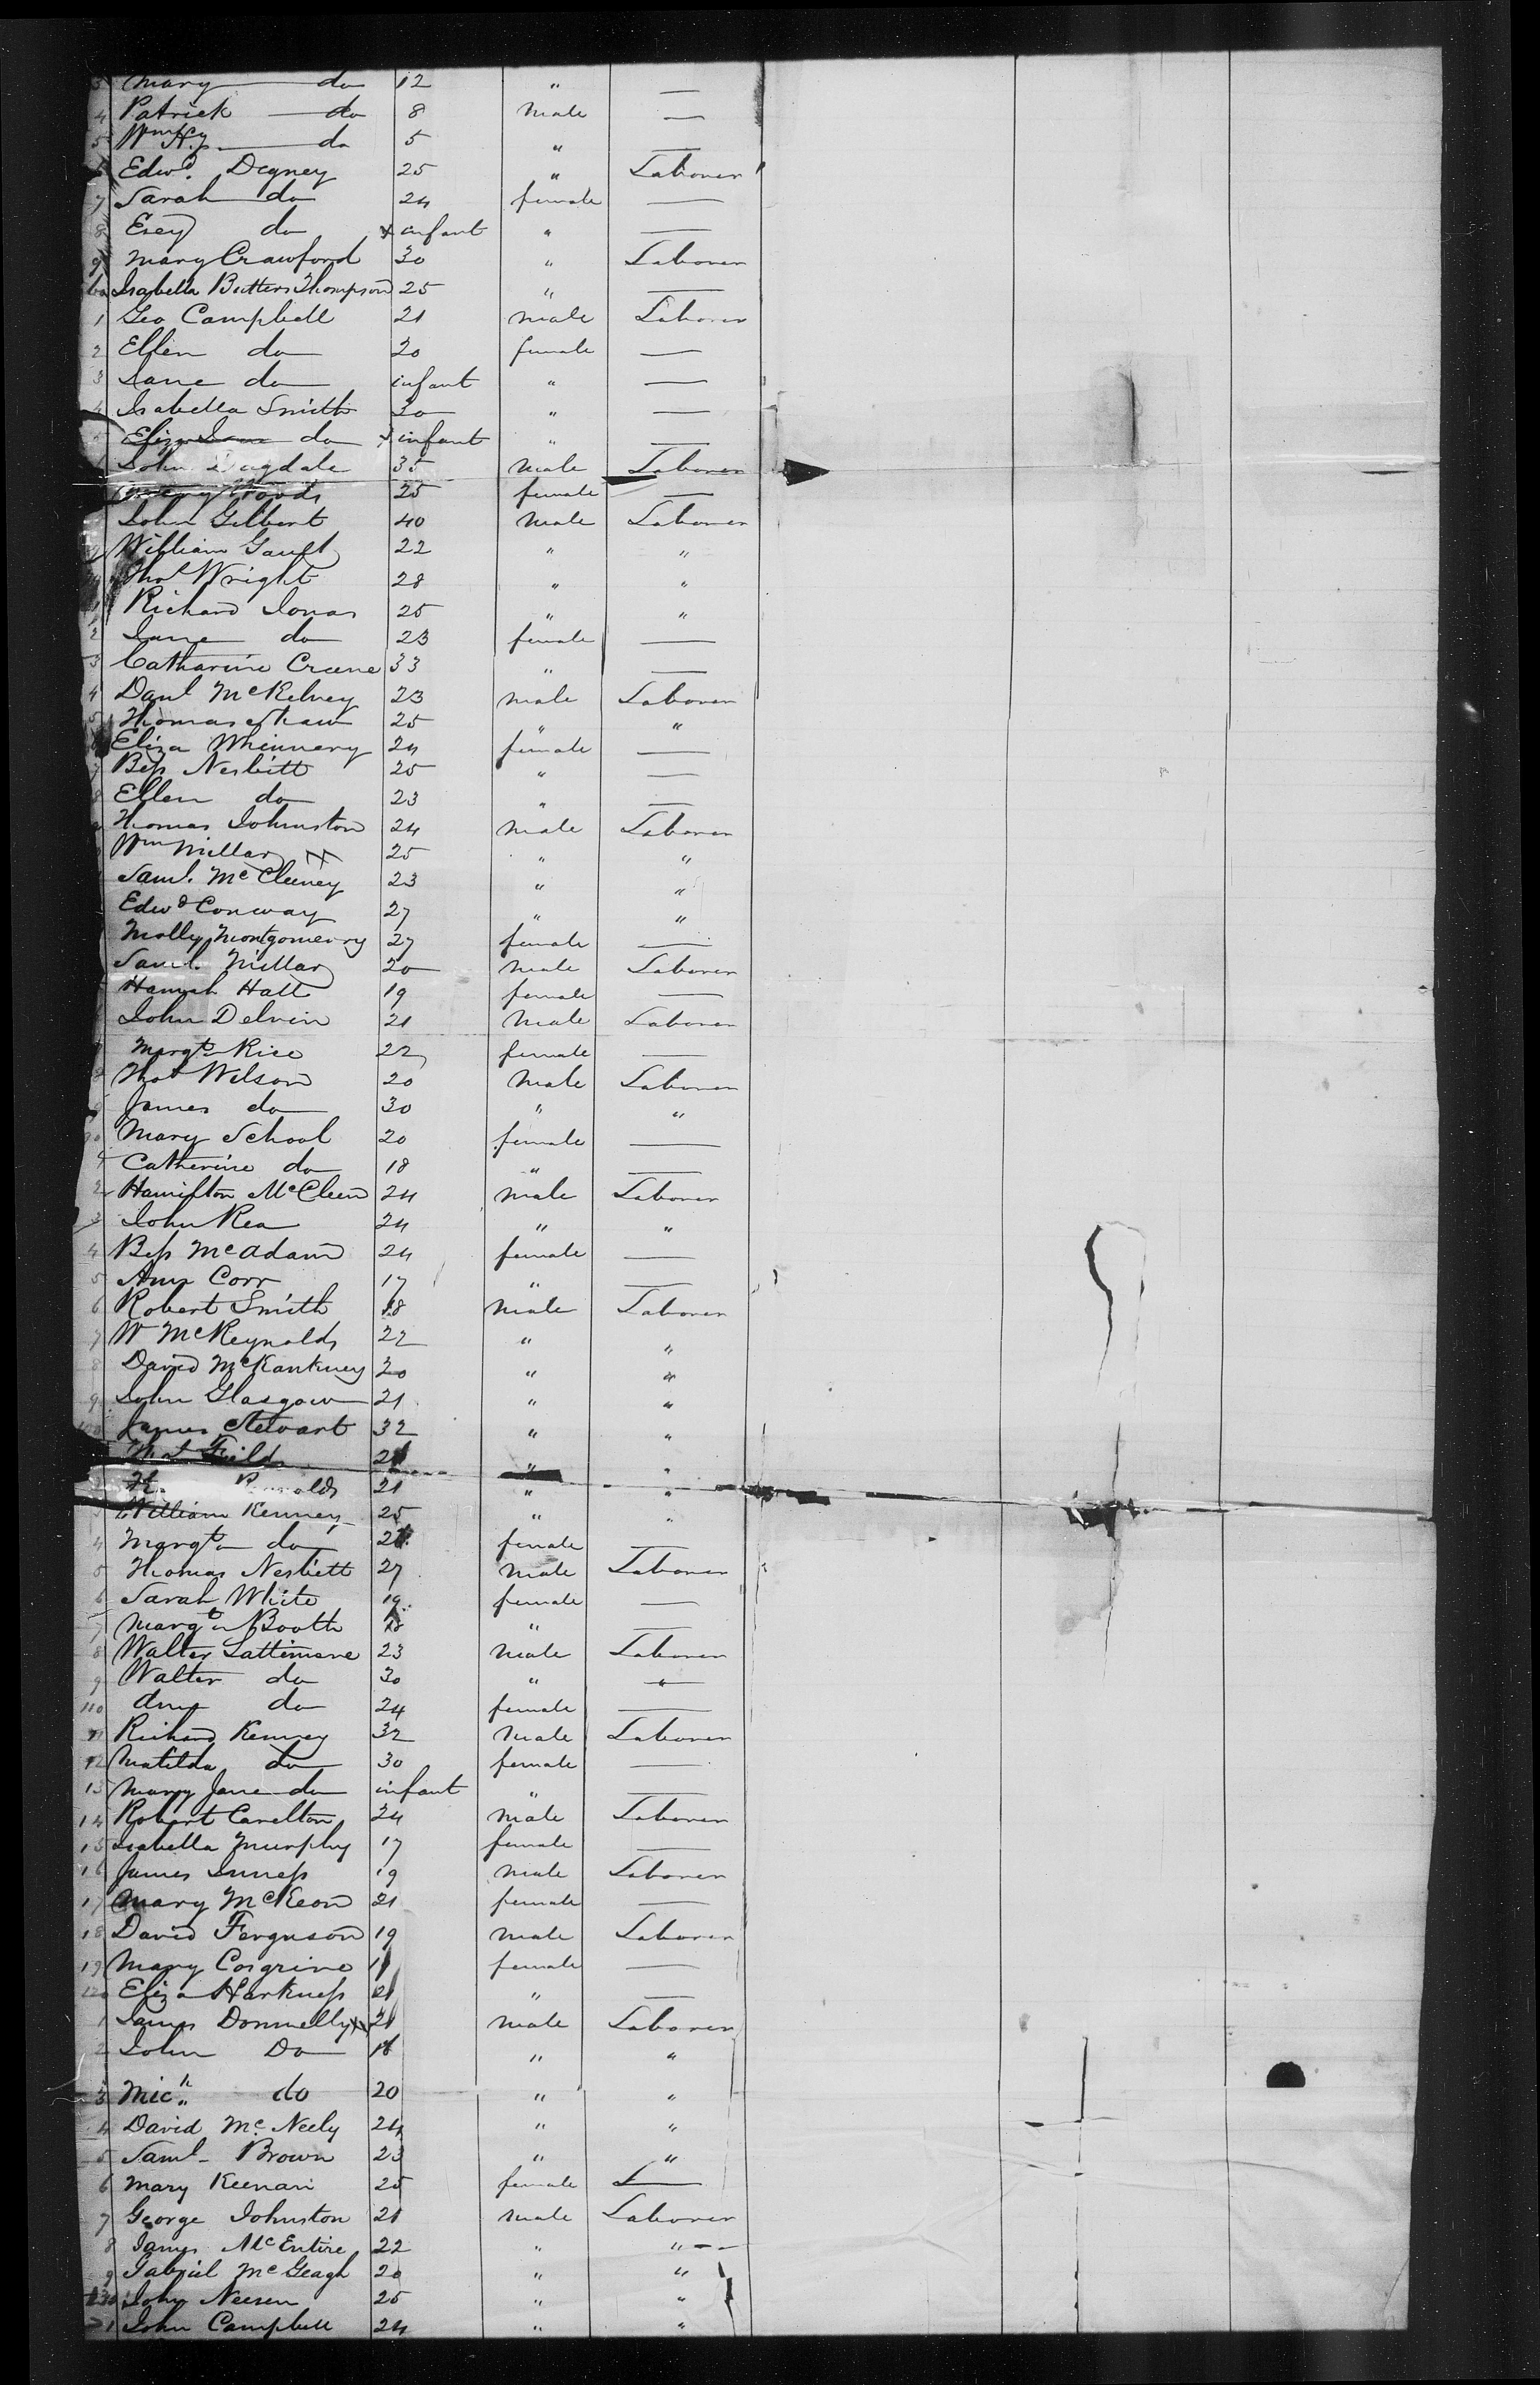 3 Mary do 12 " —
4 Patrick do 8 male —
5 Wm Hy. do 5 " —
6 Edwd. Degney 25 " Laborer
7 Sarah do 24 female —
8 Esey do + infant " —
9 Mary Crawford 30 " Laborer
60 Isabella Butters Thompson 25 " —
1 Geo Campbell 21 male Laborer
2 Ellen do 20 female —
3 Jane do infant " —
4 Isabella Smith 30 " —
5 Eliza Jane do + infant " —
John Dugdale 35 male Laborer
Woods 25 female —
John Gilbert 40 male Laborer
William Gault 22 " "
Thos Wright 28 " "
1 Richard Jonas 25 " "
2 Jane do 23 female —
3 Catharine Creene 33 " —
4 Danl McKelvey 23 male Laborer
5 Thomas Shaw 25 " "
6 Eliza Whinnery 24 female —
7 Bess Nesbitt 25 " —
8 Ellen do 23 " —
9 Thomas Johnston 24 male Laborer
Wm Millar 25 " "
Saml. McCleney 23 " "
Edwd Conway 27 " "
Molly Montgomery 27 female —
Saml. Millar 20 male Laborer
Hannah Hall 19 female —
John Delvin 21 male Laborer
Margt Rice 22 female —
8 Thos Wilson 20 male Laborer
9 James do 30 " "
90 Mary School 20 female —
1 Catherine do 18 " —
2 Hamilton McCleen 24 male Laborer
3 John Rea 24 " "
4 Bess McAdam 24 female —
5 Ann Corr 17 " —
6 Robert Smith 18 male Laborer
7 W McReynolds 22 " "
8 David McKankney 20 " "
9 John Glasgow 21 " "
100 James Stewart 32 " "
Fields " "
21 " "
3 William Kenney 25 " "
4 Margt do female —
5 Thomas Nesbitt 27 male Laborer
6 Sarah White 19 female —
7 Margt Booth 18 " —
8 Walter Lattimore 23 male Laborer
9 Walter do 30 " "
110 Ann do 24 female —
11 Richard Kenney 32 male Laborer
12 Matilda do 30 female —
13 Mary Jane do infant " —
14 Robert Carelton 24 male Laborer
15 Isabella Murphy 17 female —
16 James Inness 19 male Laborer
17 Mary McKeon 21 female —
18 David Ferguson 19 male Laborer
19 Mary Cosgrive female —
120 Eliza Harkness 21 " —
1 James Donnelly 21 male Laborer
2 John Do 18 " "
3 Mich do 20 " "
4 David Mc Neely 24 " "
5 Saml Brown 23 " "
6 Mary Keenan 25 female —
7 George Johnston 21 male Laborer
8 James McEntire 22 " "
9 Gabriel McGeagh 20 " "
130 John Neesen 25 " "
1 John Campbell 24 " "